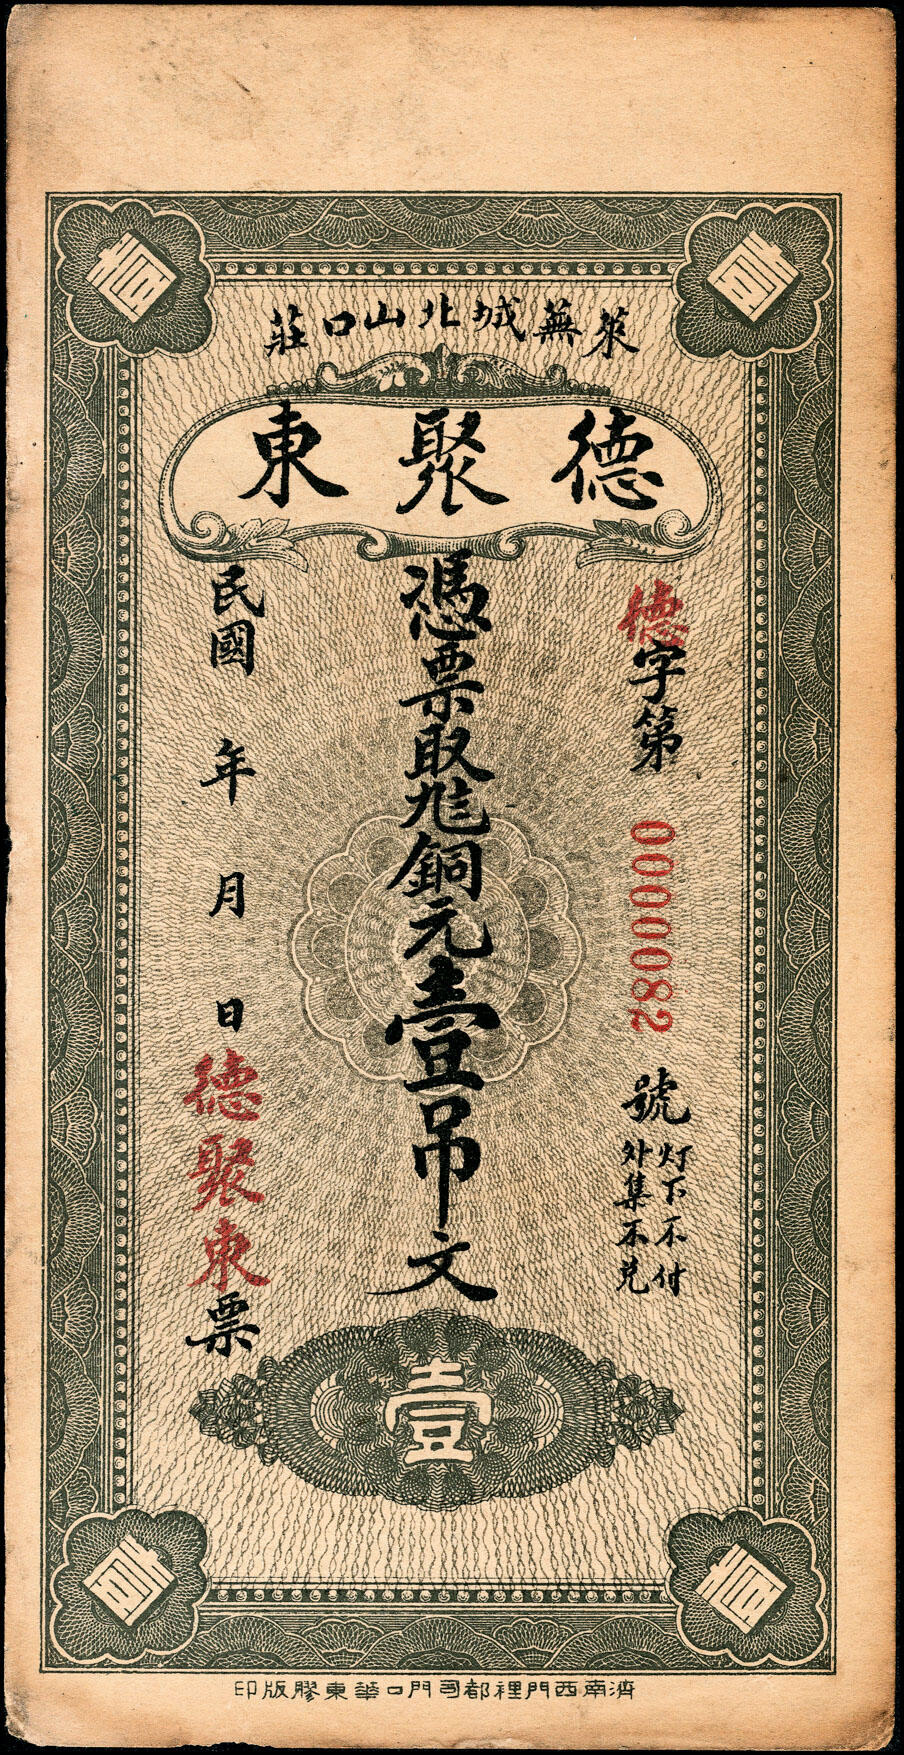 壹
壹
萊蕪城北山口莊
德聚東
德字第 0000082 號
灯下不付
外集不兑
憑票取銅元壹吊文
民國 年 月 日 德聚東票
壹
壹
壹
濟南西門裡都司門口華東膠版印